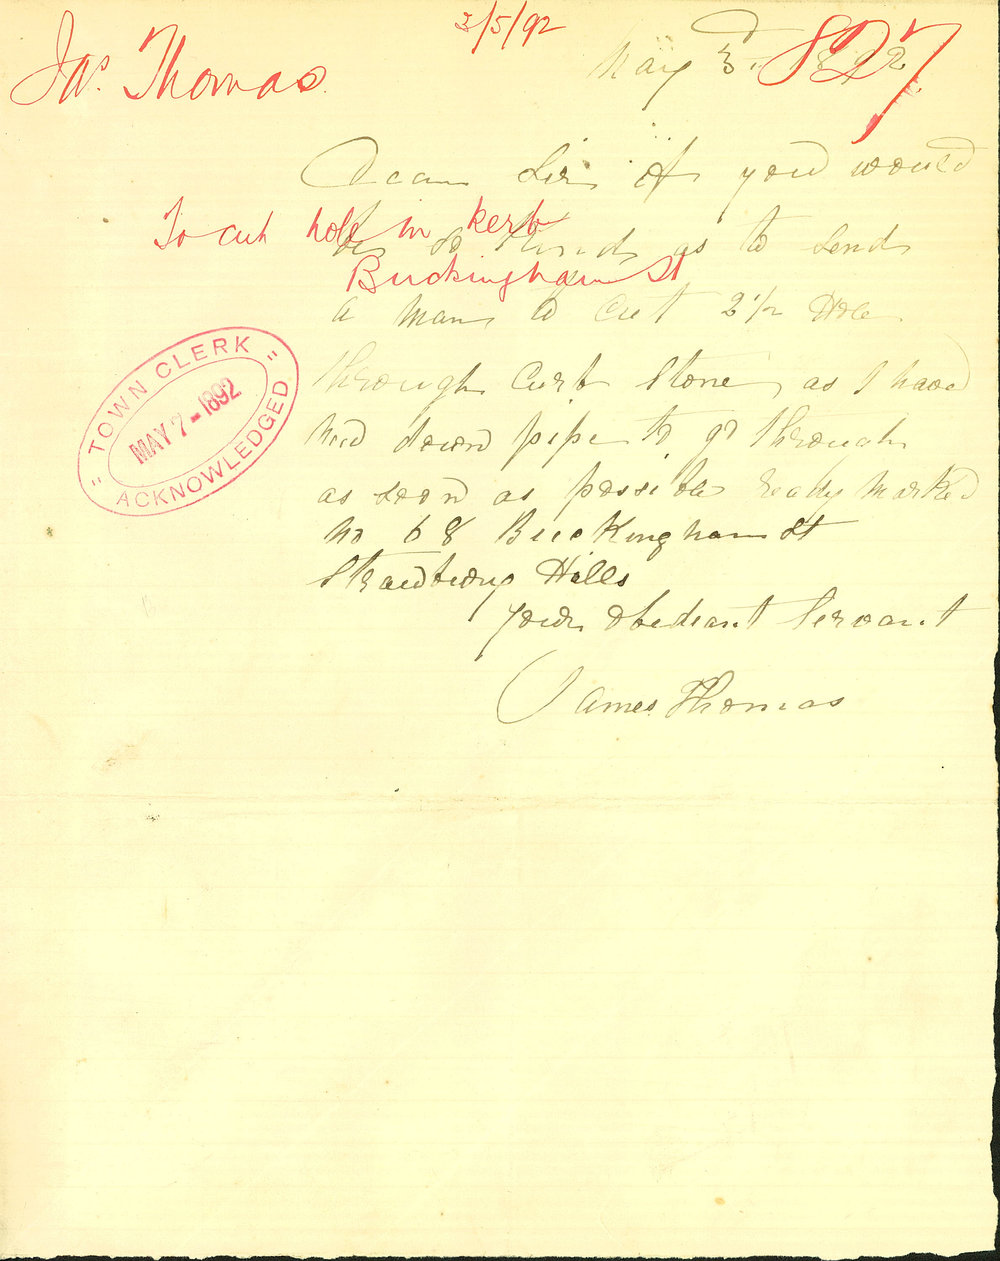 3/5/92
Jas. Thomas
827
May 3rd 1892
Dear Sir if you would
To cut hole in kerb
be so kind as to send
Buckingham St
a man to cut 2 1/2 Hole
through Curb Stone as I have
down pipe to go through
as soon as possible ready marked
No 68 Buckingham St
Strawberry Hills
your obediant Servant
James Thomas
"TOWN CLERK"
MAY 7 - 1892
ACKNOWLEDGED